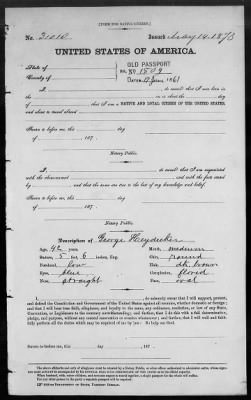 [FORM FOR NATIVE CITIZEN.]
No. 31010 Issued May 14. 1873
UNITED STATES OF AMERICA.
State of
County of
OLD PASSPORT
No. 1509
Dated 12 June 1861
I, do swear that I was born in
on or about the day of
that I am a NATIVE AND LOYAL CITIZEN OF THE UNITED STATES,
and about to travel abroad
Sworn to before me, this day
of 187 .
Notary Public.
I, do swear that I am acquainted
with the above-named and with the facts stated
by and that the same are true to the best of my knowledge and belief.
Sworn to before me, this day
of 187 .
Notary Public.
Description of George
Age: 42 years, Mouth: medium
Stature: 5 feet 6 inches, Eng. Chin: round
Forehead: low Hair: dk brown
Eyes: blue Complexion: florid
Nose: straight Face: oval
I, do solemnly swear that I will support, protect,
and defend the Constitution and Government of the United States against all enemies, whether domestic or foreign;
and that I will bear true faith, allegiance, and loyalty to the same, any ordinance, resolution, or law of any State,
Convention, or Legislature to the contrary notwithstanding; and further, that I do this with a full determination,
pledge, and purpose, without any mental reservation or evasion whatsoever; and further, that I will well and faith-
fully perform all the duties which may be required of me by law: So help me God.
Sworn to before me, this day of , 187 .